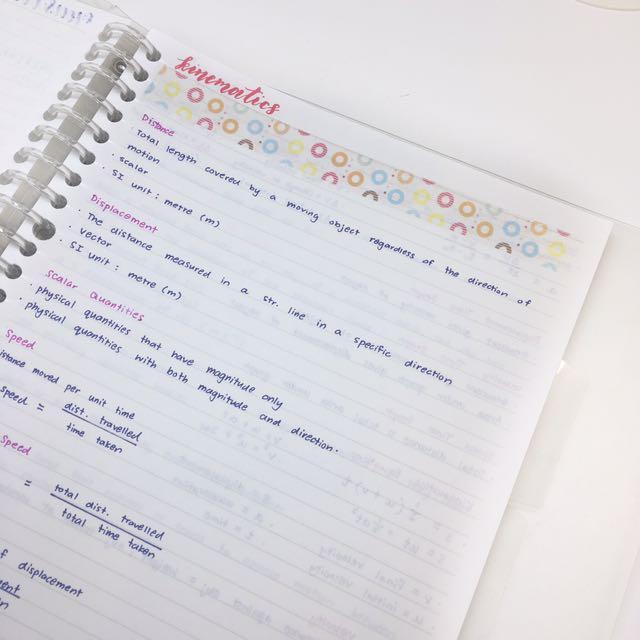 kinematics
Distance
· Total length covered by a moving object regardless of the direction of
motion
· scalar
· SI unit : metre (m)
Displacement
· The distance measured in a str. line in a specific direction
· vector
· SI unit : metre (m)
Scalar Quantities
· physical quantities that have magnitude only
· physical quantities with both magnitude and direction.
Speed
moved per unit time
speed = dist. travelled
time taken
Speed
= total dist. travelled
total time taken
displacement